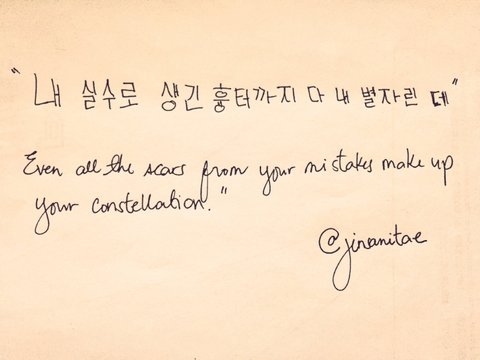 "내 실수로 생긴 흉터까지 다 내 별자린 데"
Even all the scars from your mistakes make up
your constellation."
@jinanitae